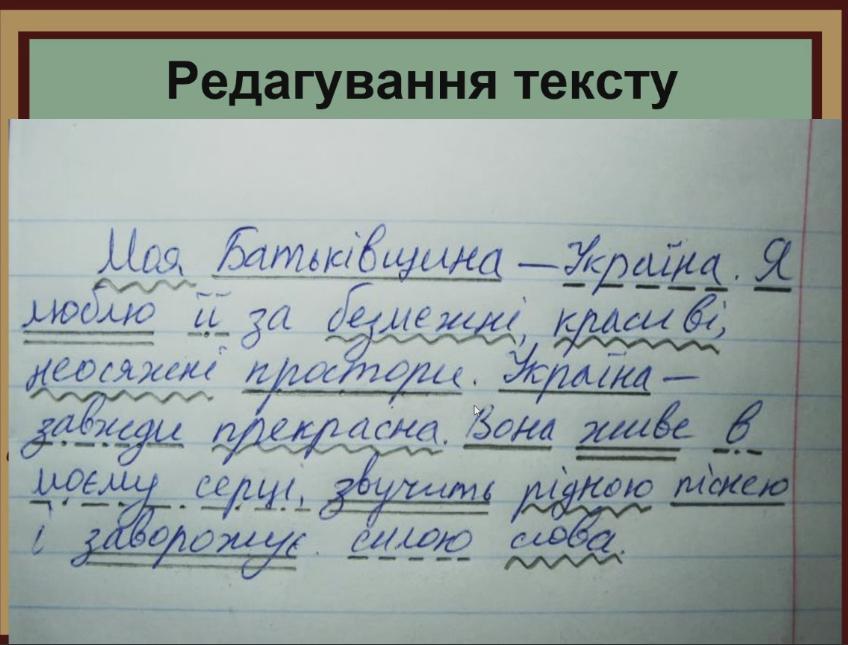 Редагування тексту
Моя Батьківщина — Україна. Я
люблю її за безмежні, красиві,
неосяжні простори. Україна —
завжди прекрасна. Вона живе в
моєму серці, звучить рідною піснею
і заворожує силою слова.